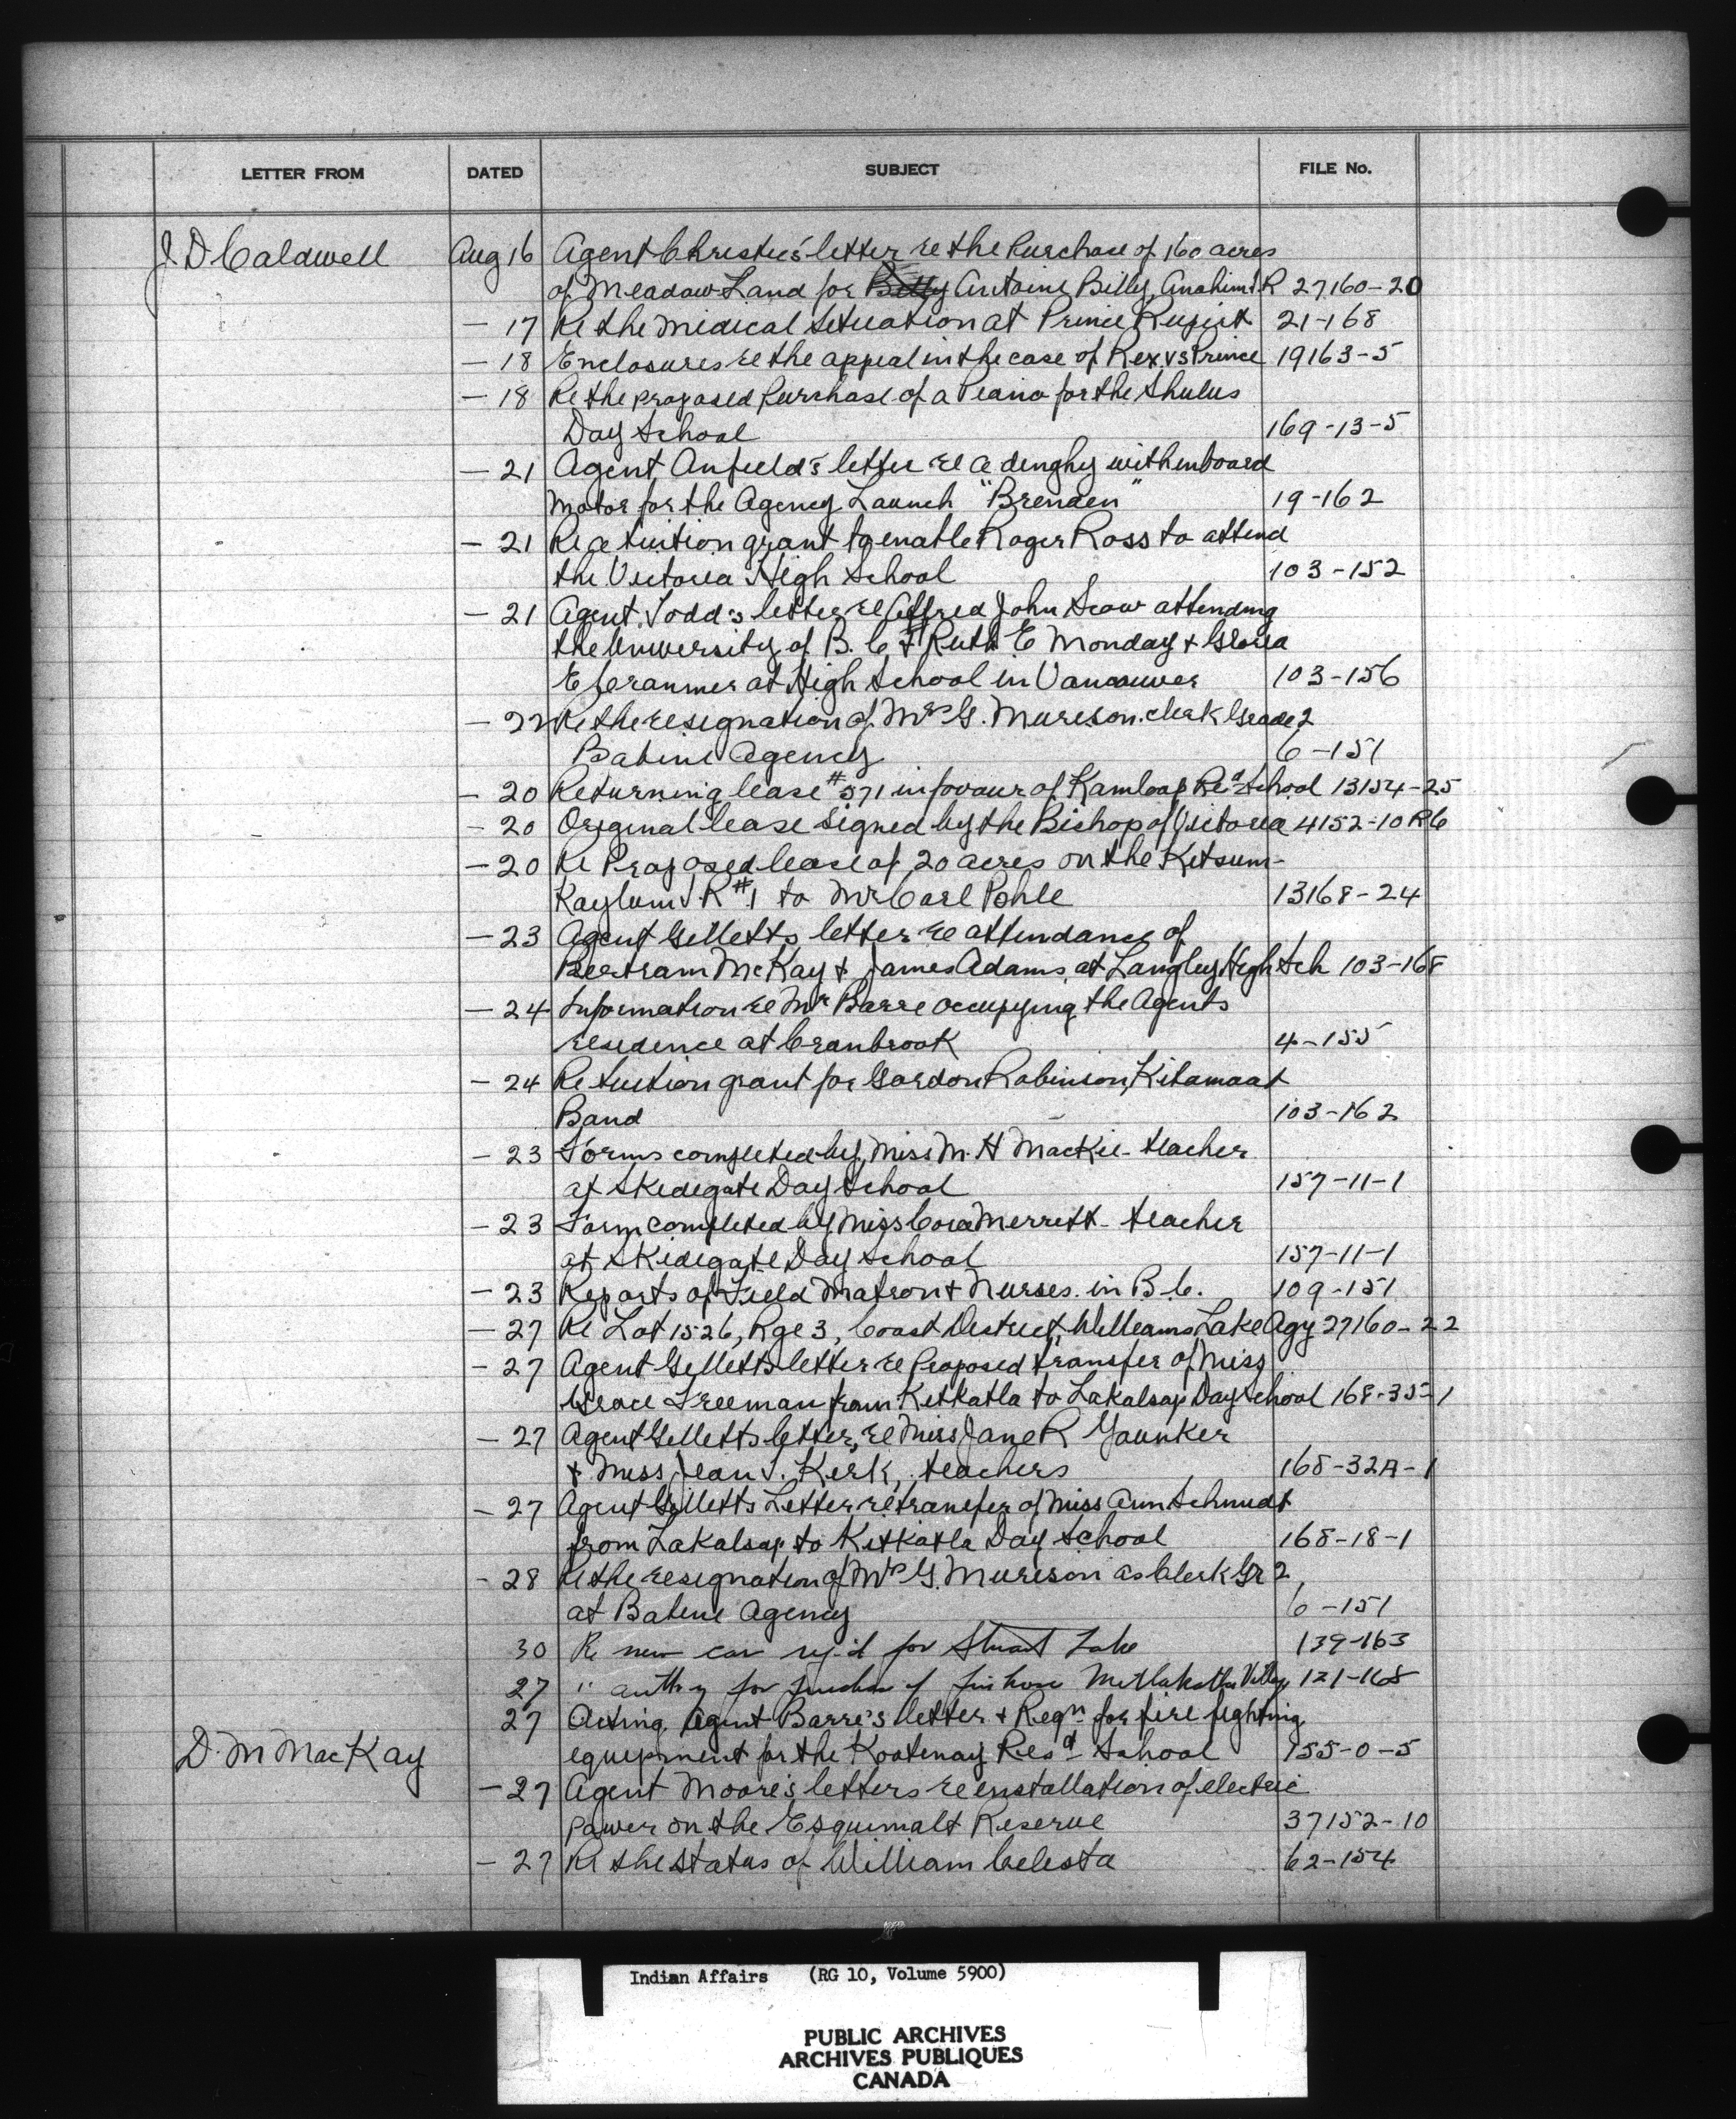 LETTER FROM DATED SUBJECT FILE No.
J. D Caldwell Aug 16 Agent Christie's letter re the Purchase of 160 acres
of Meadow Land for Billy Antoine Billy, Anahim I R 27160-20
— 17 Re the medical situation at Prince Rupert 21-168
— 18 Enclosures re the appeal in the case of Rex vs Prince 19163-5
— 18 Re the proposed purchase of a Piano for the Shulus
Day School 169-13-5
— 21 Agent Anfield's letter re a dinghy with inboard
Motor for the Agency Launch "Brenden" 19-162
— 21 Re a tuition grant to enable Roger Ross to attend
the Victoria High School 103-152
— 21 Agent Todd's letter re Alfred John Scow attending
the University of B. C & Ruth E Monday & Gloria
E Cranmer at High School in Vancouver 103-156
— 22 Re the resignation of Mrs G. Murison. clerk Grade 2
Babine Agency 6-151
— 20 Returning lease #571 in favour of Kamloop Resd School 13154-25
— 20 Original lease signed by the Bishop of Victoria 4152-10 RC
— 20 Re Proposed lease of 20 acres on the Kitsum-
Kaylum I R #1 to Mr Carl Pohle 13168-24
— 23 Agent Gillett's letter re attendance of
Bertram McKay & James Adams at Langley High Sch 103-168
— 24 Information re Mr Barre occupying the Agents
residence at Cranbrook 4-155
— 24 Re tuition grant for Gordon Robinson, Kitamaat
Band 103-162
— 23 Forms completed by Miss M. H MacKie - teacher
at Skidegate Day School 157-11-1
— 23 Form completed by Miss Cora Merritt - teacher
at Skidegate Day School 157-11-1
— 23 Reports of Field Matron & Nurses. in B.C. 109-151
— 27 Re Lot 1526, Rge 3, Coast District, Williams Lake Agy 27160-22
— 27 Agent Gillett's letter re Proposed transfer of Miss
Grace Freeman from Kitkatla to Lakalsap Day School 168-35-1
— 27 Agent Gillett's letter, re Miss Jane R Younker
& Miss Jean I. Kirk, teachers 168-32A-1
— 27 Agent Gillett's Letter re transfer of Miss Ann Schmidt
from Lakalsap to Kitkatla Day School 168-18-1
- 28 Re the resignation of Mrs G. Murison as Clerk Gr 2,
at Babine Agency 6-151
30 Re new car req'd for Stuart Lake 139-163
27 " auth'y for purchase of fire hose Metlakatla Village 121-168
27 Acting Agent Barre's letter & Reqn for fire fighting
D. M MacKay equipment for the Kootenay Resd School 155-0-5
— 27 Agent Moore's letters re installation of electric
Power on the Esquimalt Reserve 37152-10
— 27 Re the status of William Celesta 62-154
Indian Affairs (RG 10, Volume 5900)
PUBLIC ARCHIVES
ARCHIVES PUBLIQUES
CANADA